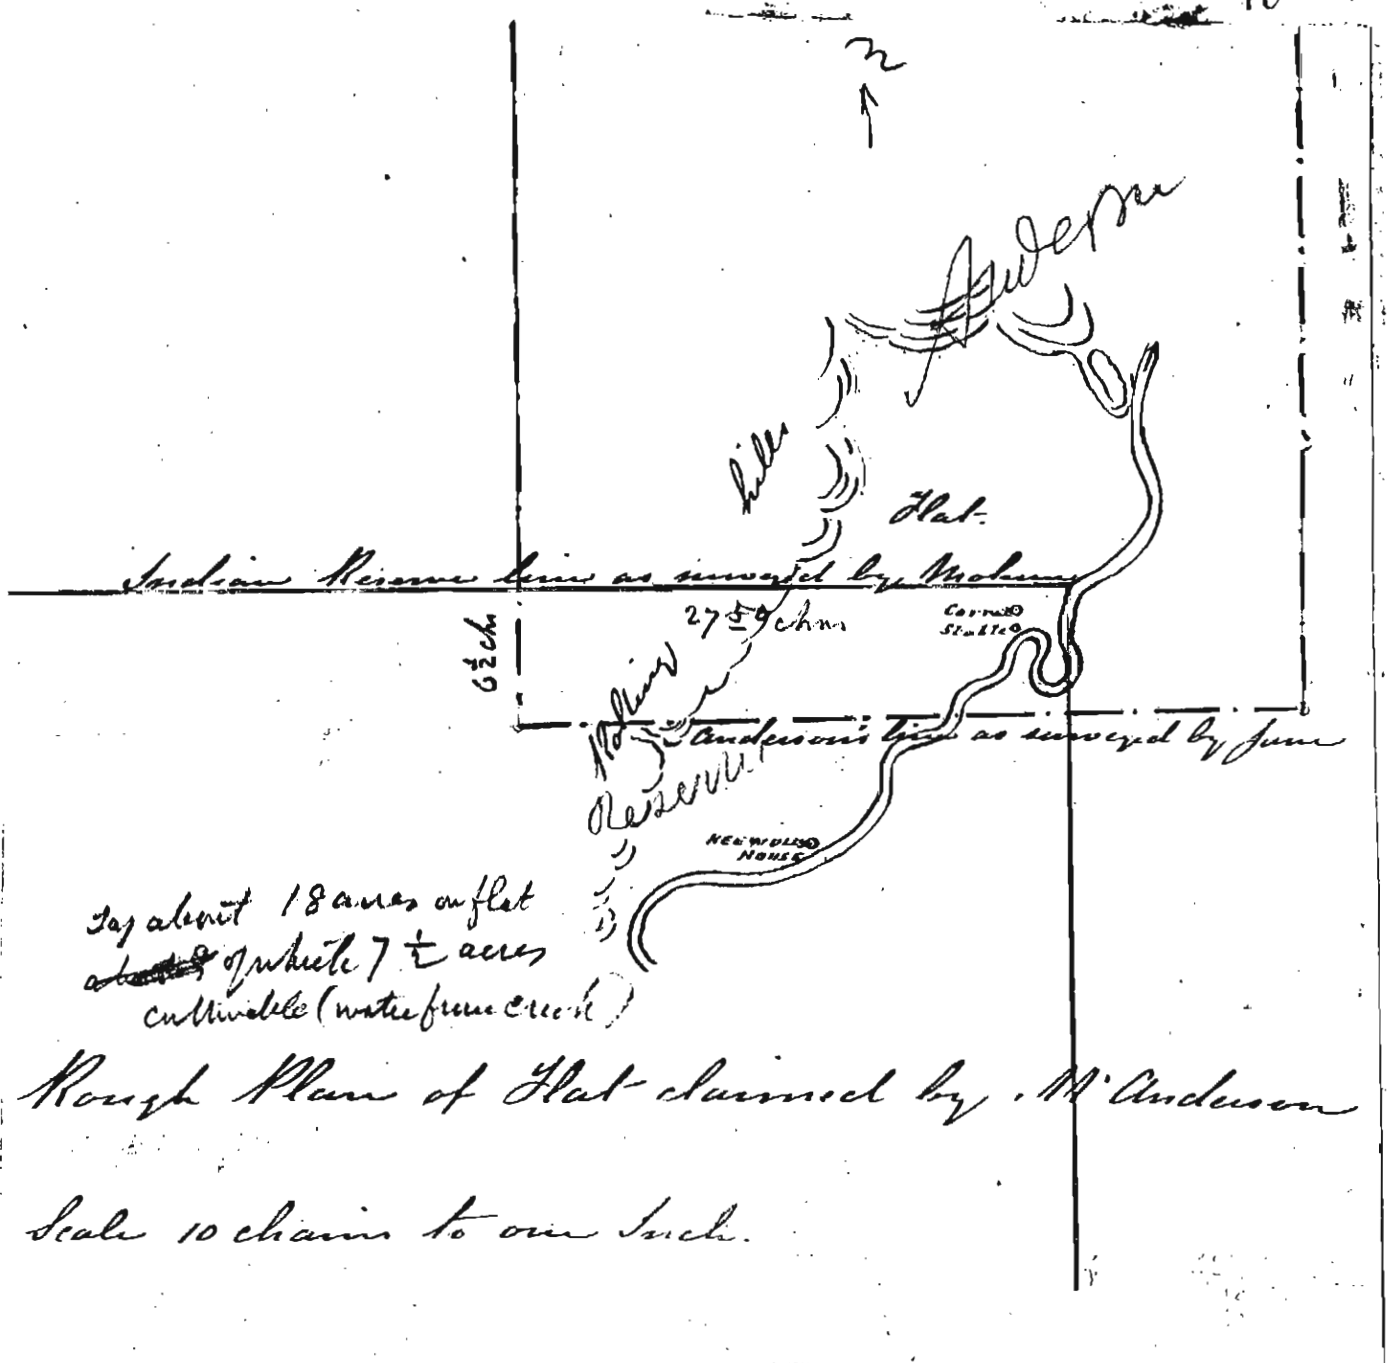 N
Anderson
hills
Flat
Indian Reserve line as surveyed by Mohun
27 50 chns
Corral
Stable
6 1/2 chs
Rolling
Anderson's line as surveyed by Jane
Reserve
HOUSE
Say about 18 acres on flat
of which 7 1/2 acres
cultivable (water from creek)
Rough Plan of Flat claimed by Mr Anderson
Scale 10 chains to one Inch.